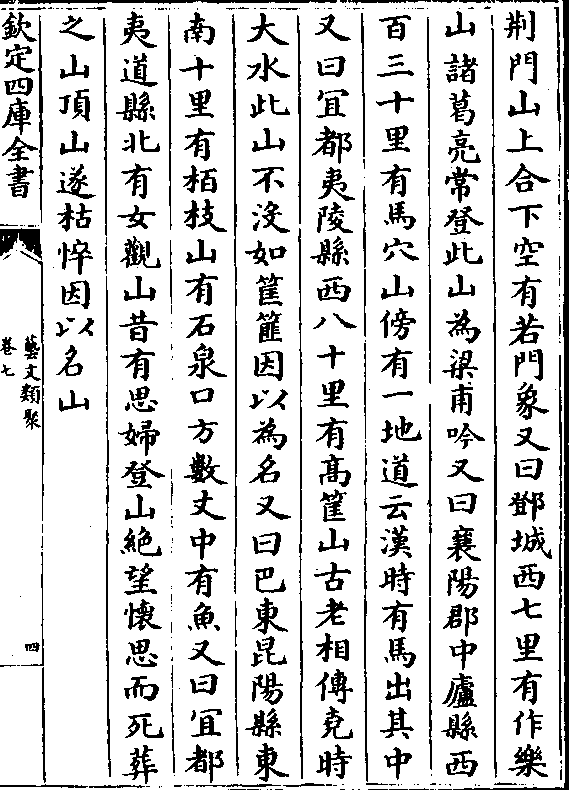 荆門山上合下空有若門象又曰鄧城西七里有作樂
山諸葛亮常登此山為梁甫吟又曰襄陽郡中廬縣西
百三十里有馬穴山傍有一地道云漢時有馬出其中
又曰宜都夷陵縣西八十里有髙筐山古老相傳堯時
大水此山不沒如筐篚因以為名又曰巴東昆陽縣東
南十里有栢枝山有石泉口方數丈中有魚又曰宜都
夷道縣北有女觀山昔有思婦登山絕望懷思而死葬
之山頂山遂枯悴因以名山
欽定四庫全書
藝文類聚
卷七
四